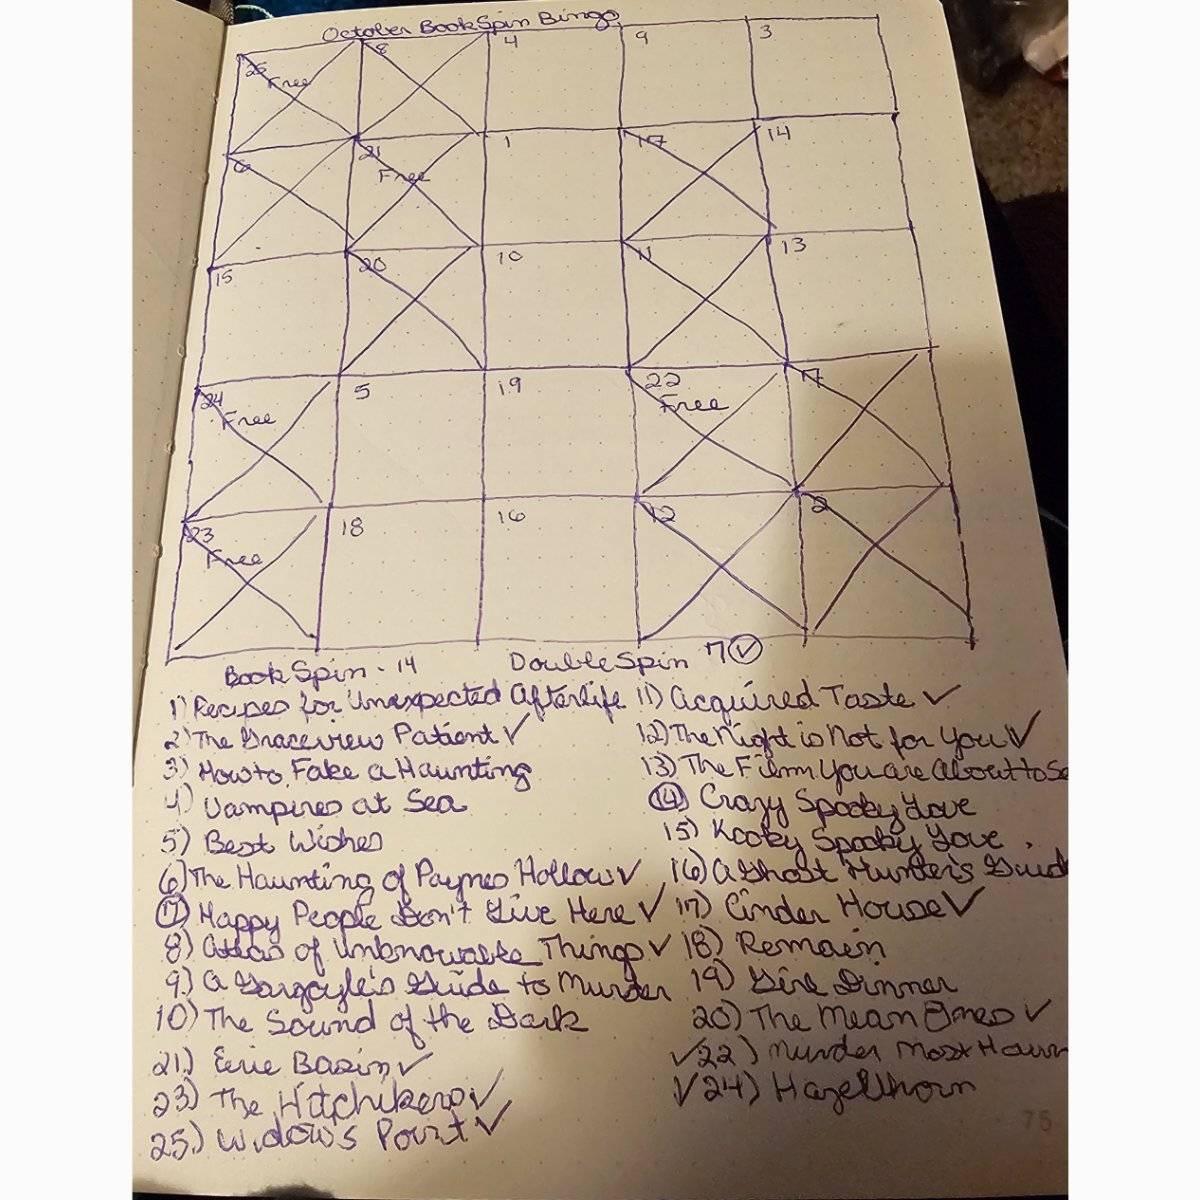 October BookSpin Bingo
25 8 4 9 3
Free
6 21 1 17 14
Free
15 20 10 11 13
24 5 19 22 7
Free Free
23 18 16 12 2
Free
BookSpin - 14 DoubleSpin 7 ✓
1) Recipes for Unexpected Afterlife 11) Acquired Taste ✓
2) The Graceview Patient ✓ 12) The Night is Not for You ✓
3) How to Fake a Haunting 13) The Film You are About to Se
4) Vampires at Sea 14) Crazy Spooky Love
5) Best Wishes 15) Kooky Spooky Love
6) The Haunting of Paynes Hollow ✓ 16) A Ghost Hunter's Guid
7) Happy People Don't Live Here ✓ 17) Cinder House ✓
8) Atlas of Unknowable Things ✓ 18) Remain
9.) A Gargoyle's Guide to Murder 19) Girl Dinner
10) The Sound of the Dark 20) The Mean Ones ✓
21.) Erie Basin ✓ ✓ 22) Murder Most Haun
23) The Hitchhikers ✓ ✓ 24) Hazelthorn
25.) Widow's Point ✓
75